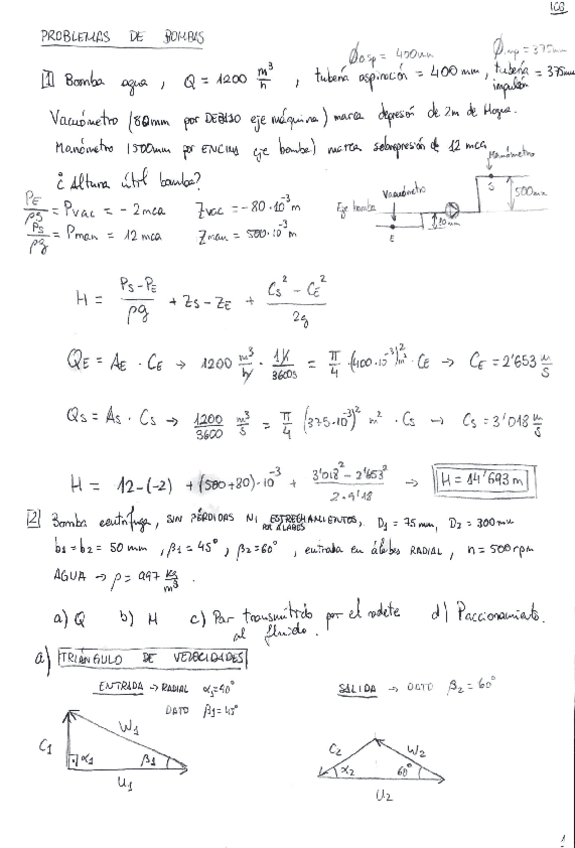 108
PROBLEMAS DE BOMBAS
Øasp = 400mm
Øimp = 375mm
1 Bomba agua, Q = 1200 m³/h, tubería aspiración = 400 mm, tubería impulsión = 375mm
Vacuómetro (80mm por DEBAJO eje máquina) marca depresión de 2m de
Manómetro (500mm por ENCIMA eje bomba) marca sobrepresión de 12 mca
¿Altura útil bomba?
Manómetro
Vacuómetro
Eje bomba
S
500mm
80mm
E
PE/ρg = Pvac = -2mca Zvac = -80·10⁻³m
PS/ρg = Pman = 12 mca Zman = 500·10⁻³m
H = (PS-PE)/ρg + ZS-ZE + (CS² - CE²)/2g
QE = AE · CE → 1200 m³/h · 1h/3600s = π/4 · (400·10⁻³)² m² · CE → CE = 2'653 m/s
QS = AS · CS → 1200/3600 m³/s = π/4 (375·10⁻³)² m² · CS → CS = 3'018 m/s
H = 12-(-2) + (500+80)·10⁻³ + (3'018² - 2'653²)/(2·9'18) → H = 14'693 m
2 Bomba centrífuga, SIN PÉRDIDAS NI ESTRECHAMIENTOS POR ÁLABES, D1 = 75mm, D2 = 300mm
b1 = b2 = 50 mm, β1 = 45°, β2 = 60°, entrada en álabes RADIAL, n = 500 rpm
AGUA → ρ = 997 kg/m³.
a) Q b) H c) Par transmitido por el rodete al fluido. d) Paccionamiento.
a) TRIÁNGULO DE VELOCIDADES
ENTRADA → RADIAL α1 = 90°
DATO β1 = 45°
SALIDA → DATO β2 = 60°
C1
W1
α1
β1
U1
C2
W2
α2
60°
U2
1